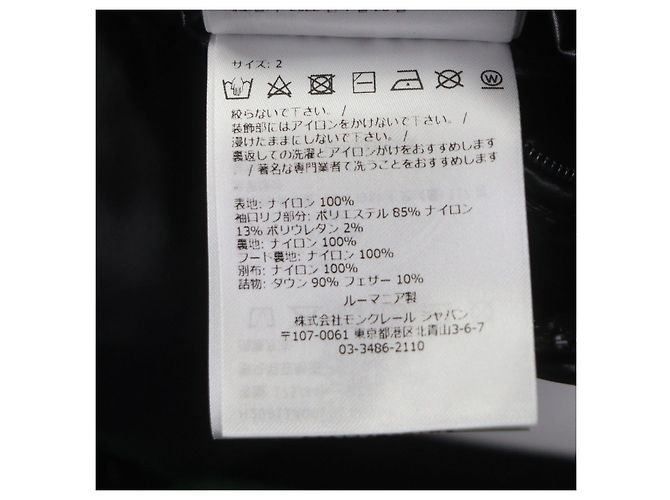 サイズ: 2
W
絞らないで下さい。 /
装飾部にはアイロンをかけないで下さい。 /
浸けたままにしないで下さい。 /
裏返しての洗濯とアイロンがけをおすすめします
/ 著名な専門業者で洗うことをおすすめします
表地: ナイロン 100%
袖口リブ部分: ポリエステル 85% ナイロン
13% ポリウレタン 2%
裏地: ナイロン 100%
フード裏地: ナイロン 100%
別布: ナイロン 100%
詰物: ダウン 90% フェザー 10%
ルーマニア製
株式会社モンクレール ジャパン
〒107-0061 東京都港区北青山3-6-7
03-3486-2110